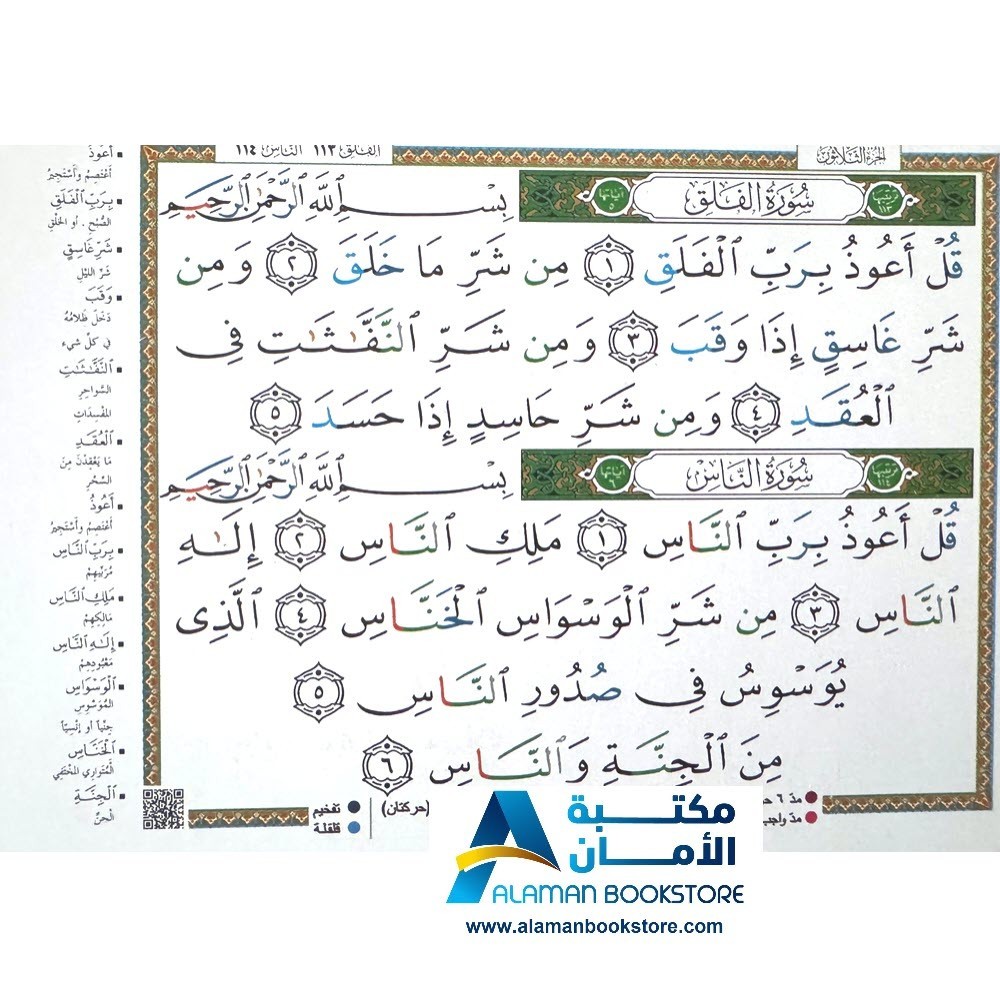 الجزء الثلاثون
الفلق ١١٣ الناس ١١٤
ترتيبها ١١٣ سُورَةُ الفَلَقِ آياتها ٥
بِسْمِ ٱللَّهِ ٱلرَّحْمَٰنِ ٱلرَّحِيمِ
قُلْ أَعُوذُ بِرَبِّ ٱلْفَلَقِ ١ مِن شَرِّ مَا خَلَقَ ٢ وَمِن
شَرِّ غَاسِقٍ إِذَا وَقَبَ ٣ وَمِن شَرِّ ٱلنَّفَّٰثَٰتِ فِى
ٱلْعُقَدِ ٤ وَمِن شَرِّ حَاسِدٍ إِذَا حَسَدَ ٥
ترتيبها ١١٤ سُورَةُ النَّاسِ آياتها ٦
بِسْمِ ٱللَّهِ ٱلرَّحْمَٰنِ ٱلرَّحِيمِ
قُلْ أَعُوذُ بِرَبِّ ٱلنَّاسِ ١ مَلِكِ ٱلنَّاسِ ٢ إِلَٰهِ
ٱلنَّاسِ ٣ مِن شَرِّ ٱلْوَسْوَاسِ ٱلْخَنَّاسِ ٤ ٱلَّذِى
يُوَسْوِسُ فِى صُدُورِ ٱلنَّاسِ ٥
مِنَ ٱلْجِنَّةِ وَٱلنَّاسِ ٦
أَعُوذُ
أَعْتَصِمُ وَأَسْتَجِيرُ
بِرَبِّ ٱلْفَلَقِ
الصُّبْحِ. أو الخَلْقِ
شَرِّ غَاسِقٍ
شَرِّ اللَّيْلِ
وَقَبَ
دَخَلَ ظَلامُهُ
في كلّ شيء
ٱلنَّفَّٰثَٰتِ
السَّواحِرِ
المُفْسِدَاتِ
ٱلْعُقَدِ
مَا يَعْقِدْنَ مِنَ
السِّحْرِ
أَعُوذُ
أَعْتَصِمُ وَأَسْتَجِيرُ
بِرَبِّ ٱلنَّاسِ
مُرَبِّيهِمْ
مَلِكِ ٱلنَّاسِ
مَالِكِهِمْ
إِلَٰهِ ٱلنَّاسِ
مَعْبُودِهِمْ
ٱلْوَسْوَاسِ
المُوَسْوِسِ
جِنِّيّاً أو إنْسِيّاً
ٱلْخَنَّاسِ
المُتَوارِي المُخْتَفِي
ٱلْجِنَّةِ
الجِنِّ
مدّ ٦
مدّ واجب
(حركتان)
تفخيم
قلقلة
مكتبة
الأمان
ALAMAN BOOKSTORE
www.alamanbookstore.com